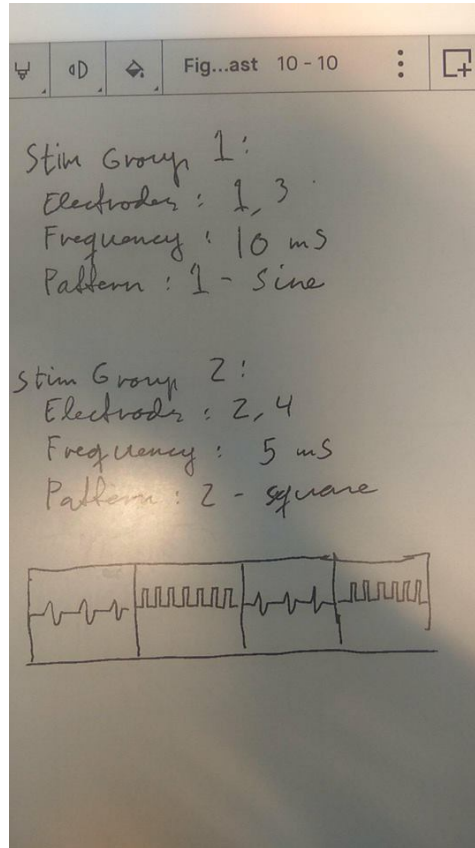 Fig...ast 10-10
Stim Group 1:
Electrodes: 1, 3
Frequency: 10 mS
Pattern: 1 - Sine
Stim Group 2:
Electrodes: 2, 4
Frequency: 5 mS
Pattern: 2 - square